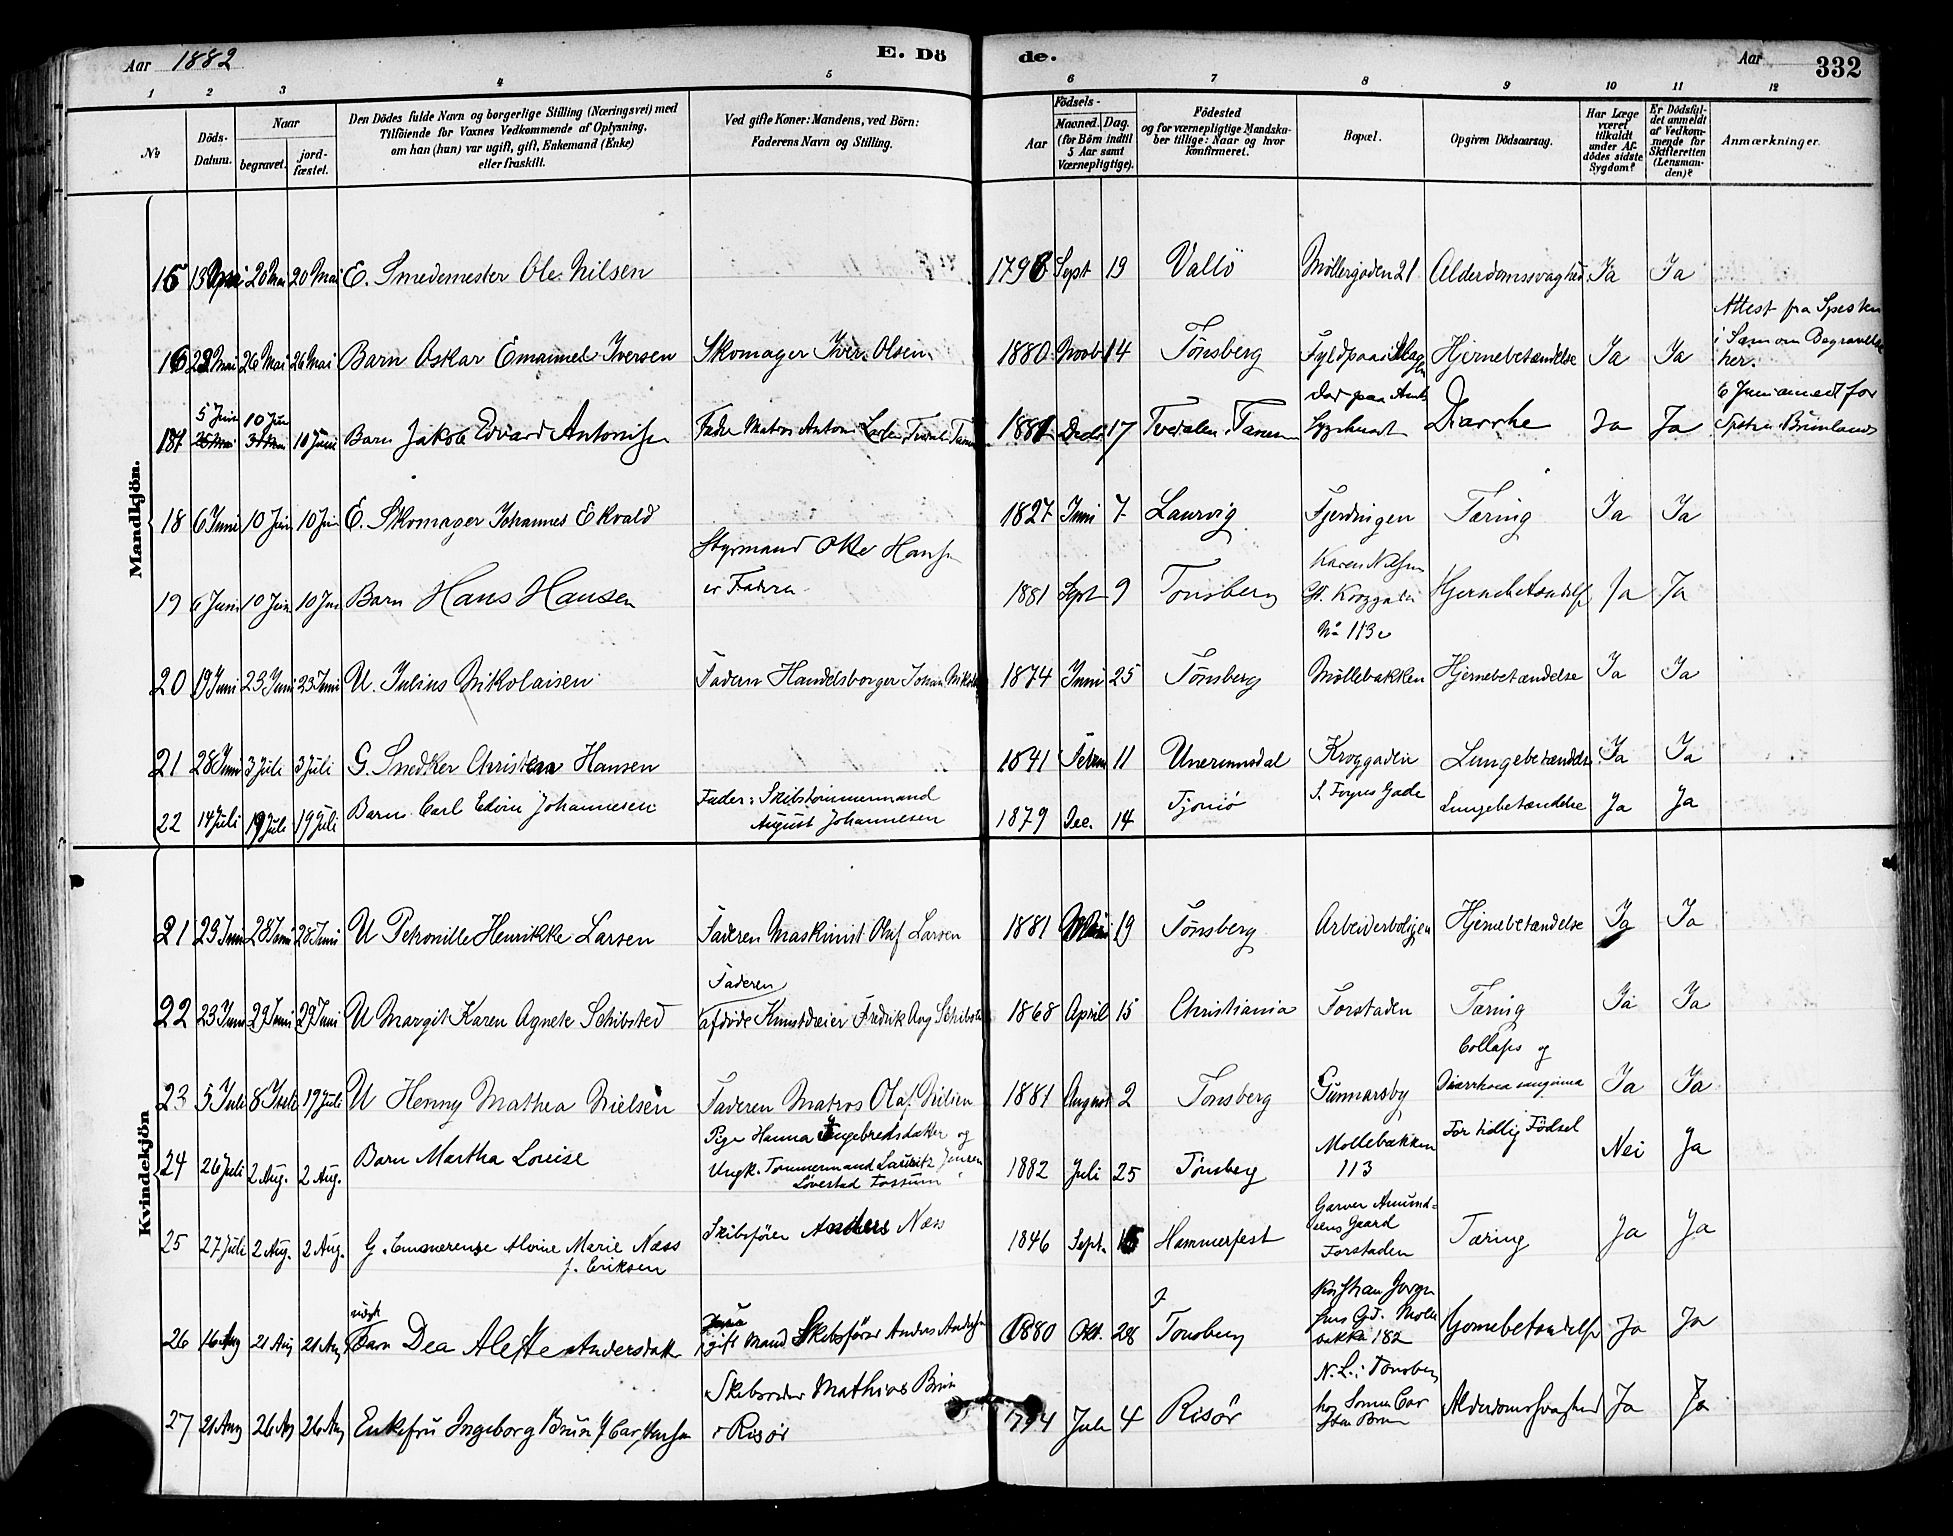 Aar 1882 E. Dö de. Aar 332
1 2 3 4 5 6 7 8 9 10 11 12
№
Döds-Datum.
Naar
begravet.
jordfæstet.
Den Dödes fulde Navn og borgerlige Stilling (Næringsvei) med
Tilföiende for Voxnes Vedkommende af Oplysning,
om han (hun) var ugift, gift, Enkemand (Enke)
eller fraskilt.
Ved gifte Koner: Mandens, ved Börn:
Faderens Navn og Stilling.
Födsels-
Aar
Maaned. Dag.
(for Börn indtil
5 Aar samt
Værnepligtige).
Födested
og for værnepligtige Mandskaber tillige: Naar og hvor
konfirmeret.
Bopæl.
Opgiven Dödsaarsag.
Har Læge
været
tilkaldt
under Afdödes sidste
Sygdom?
Er Dödsfaldet anmeldt
af Vedkommende for
Skifteretten
(Lensmanden)?
Anmærkninger.
Mandkjön.
15 13 20 Mai 20 Mai E. Smedemester Ole Nilsen 1796 Sept 19 Vallö Møllergaden 21 Alderdomssvaghed Ja Ja
16 22 Mai 26 Mai 26 Mai Barn Oskar Emanuel Iversen Skomager Iver Olsen 1880 Novb 14 Tönsberg Hjernebetændelse Ja Ja Attest fra
her.
17 5 Juni 10 Jun 10 Juni Barn Jakob Edvard Antonisen Fader Matros Anton 1881 Decbr 17 Tvedalen Diarrhe Ja Ja 6 Juni
18 6 Juni 10 Juni 10 Jun E. Skomager Johannes Ekvald 1827 Juni 7 Laurvig Fjerdingen Tæring Ja Ja
19 6 Juni 10 Jun 10 Jun Barn Hans Hansen Styrmand Otto Hansen
er Faderen 1881 Sept 9 Tonsberg Karen Nilsen
№ 113 Hjernebetændelse Ja Ja
20 19 Juni 23 Juni 23 Juni U. Julius Nikolaisen Faderen Handelsborger Johan 1874 Juni 25 Tönsberg Møllebakken Hjernebetændelse Ja Ja
21 28 Juni 3 Juli 3 Juli G. Snedker Christen Hansen 1841 11 Kroggaden Lungebetændelse Ja Ja
22 14 Juli 19 Juli 19 Juli Barn Carl Edvin Johannesen Fader: Skibstömmermand
August Johannesen 1879 Dec. 14 Tjomö S. Foyns Gade Lungebetændelse Ja Ja
Kvindekjön
21 23 Juni 28 Juni 28 Juni U Petronille Henrikke Larsen Faderen Maskinist Olaf Larsen 1881 19 Tönsberg Arbeiderboligen Hjernebetændelse Ja Ja
22 23 Juni 29 Juni 29 Juni U Margit Karen Agnete Schibsted Faderen
afdöde Fredrik Aug Schibsted 1868 April 15 Christiania Forstaden Tæring Ja Ja
23 5 Juli 8 Juli 19 Juli U Henny Mathea Nielsen Faderen Matros Olaf Nilsen 1881 August 2 Tonsberg Gunnarsby Collaps og
Diarrhoea Ja Ja
24 26 Juli 2 Aug. 2 Aug. Barn Martha Louise Pige Hanna Ingebredsdatter og
Ungk. Tömmermand Lauritz Jensen
Løvestad Fossum 1882 Juli 25 Tönsberg Mollebakken
113 For tidlig Födsel Nei Ja
25 27 Juli 2 Aug. 2 Aug. G. Emmerense Alvine Marie Næss
f. Eriksen Skibsförer Anders Næss 1846 Sept. Hammerfest Garver Amundsens Gaard
Forstaden Tæring Ja Ja
26 16 Aug 21 Aug 21 Aug Barn Dea Alette Andersdatter gift Mand Skibsförer Anders 1880 Okt. 28 Tonsberg
182 Hjernebetændelse Ja Ja
27 21 Aug 26 Aug 26 Aug Enkefru Ingeborg Brun f Carstensen Skibsreder Mathias Brun
i Risör 1794 Juli 4 Risör N. L. i Tönsberg
hos Sönnen Carsten Brun Alderdomssvaghed Ja Ja